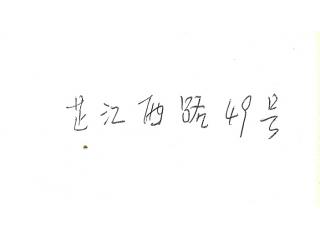 芷江西路49号